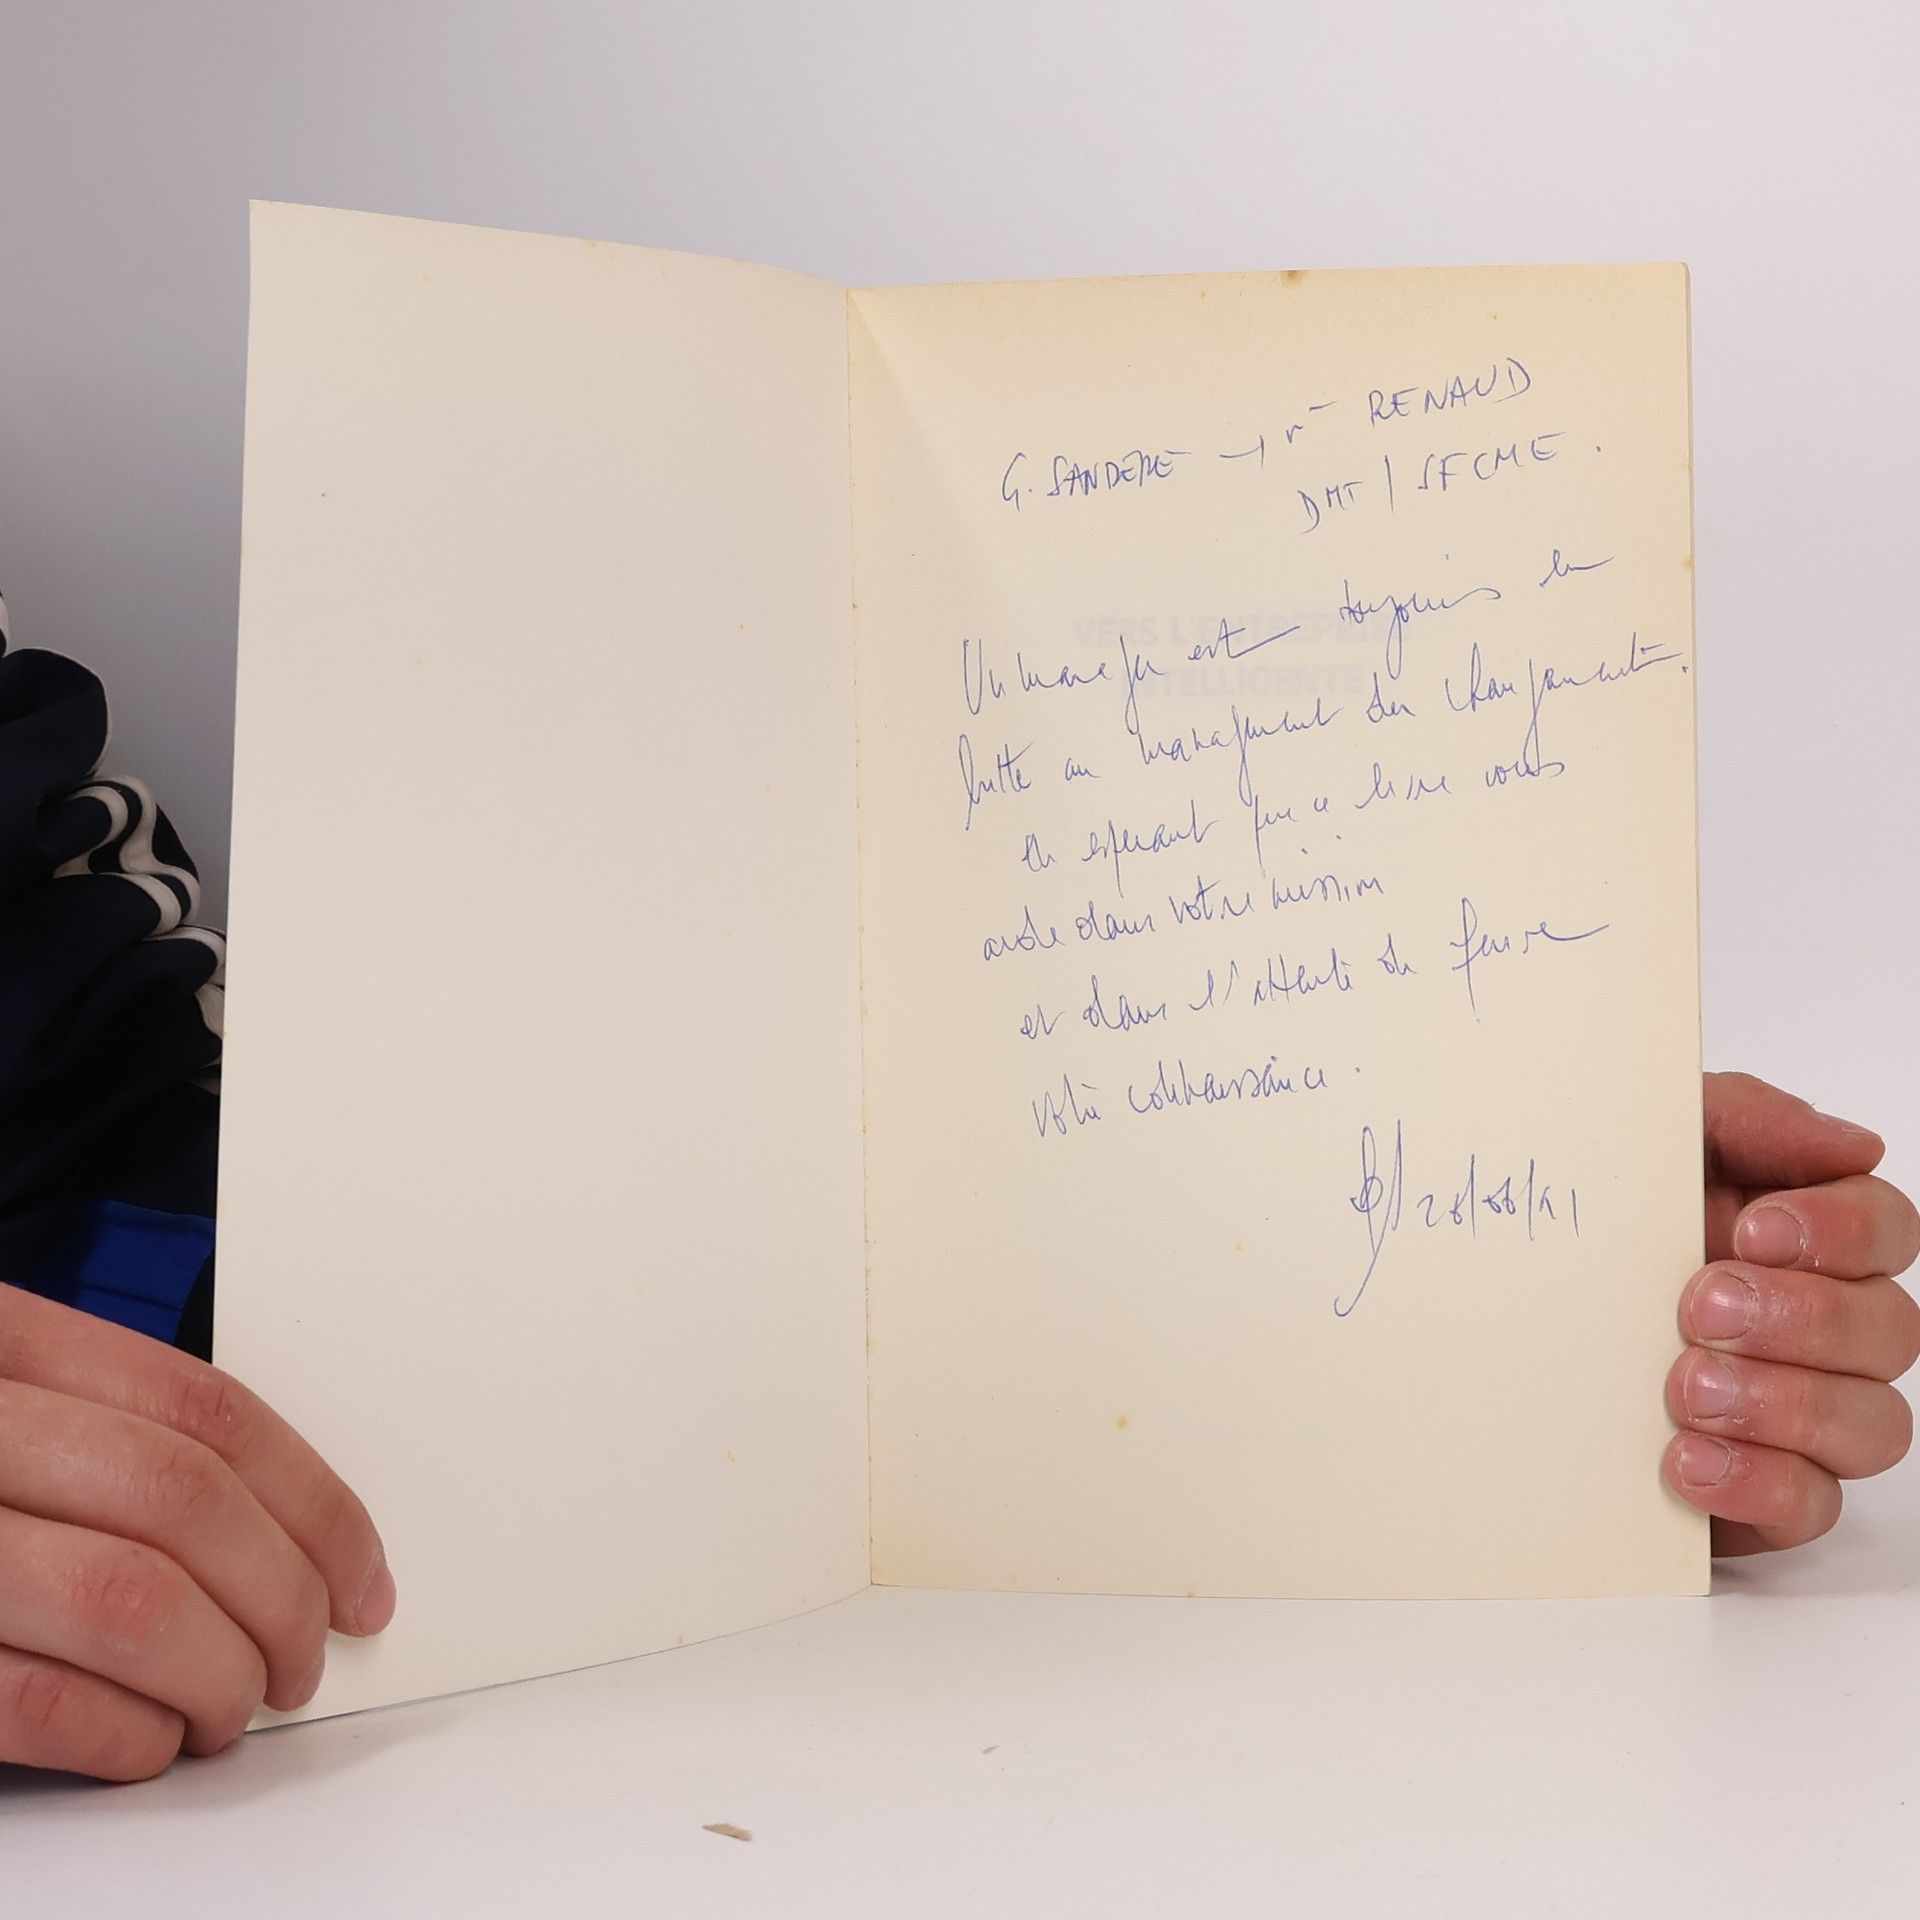 G. SANDERE → Mr RENAUD
DMT / SFCME.
Un manager est toujours en
lutte au management des changements.
En espérant que ce livre vous
aide dans votre mission
et dans l'attente de faire
votre connaissance.
28/06/91
VERS L'ENTREPRISE
INTELLIGENTE